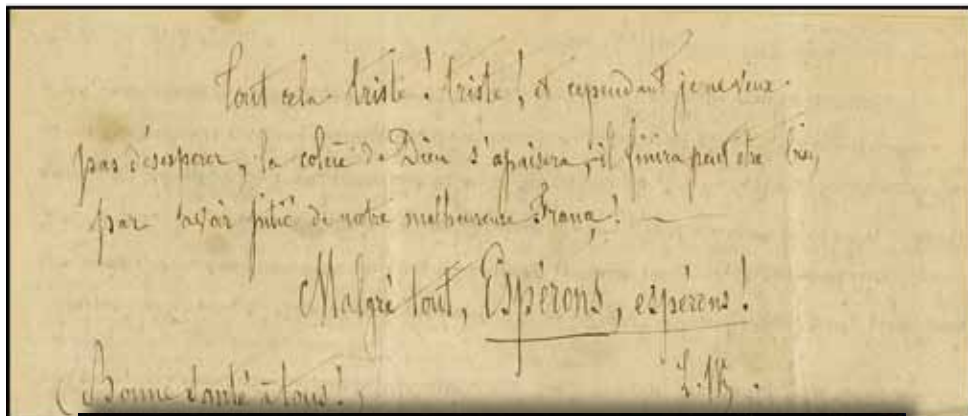 Tout cela triste ! triste ! et cependant je ne veux
pas désesperer, la colère de Dieu s'apaisera, il finira peut etre bien
par avoir pitié de notre malheureuse France !
Malgré tout, Espérons, espérons !
(Bonne santé à tous !)